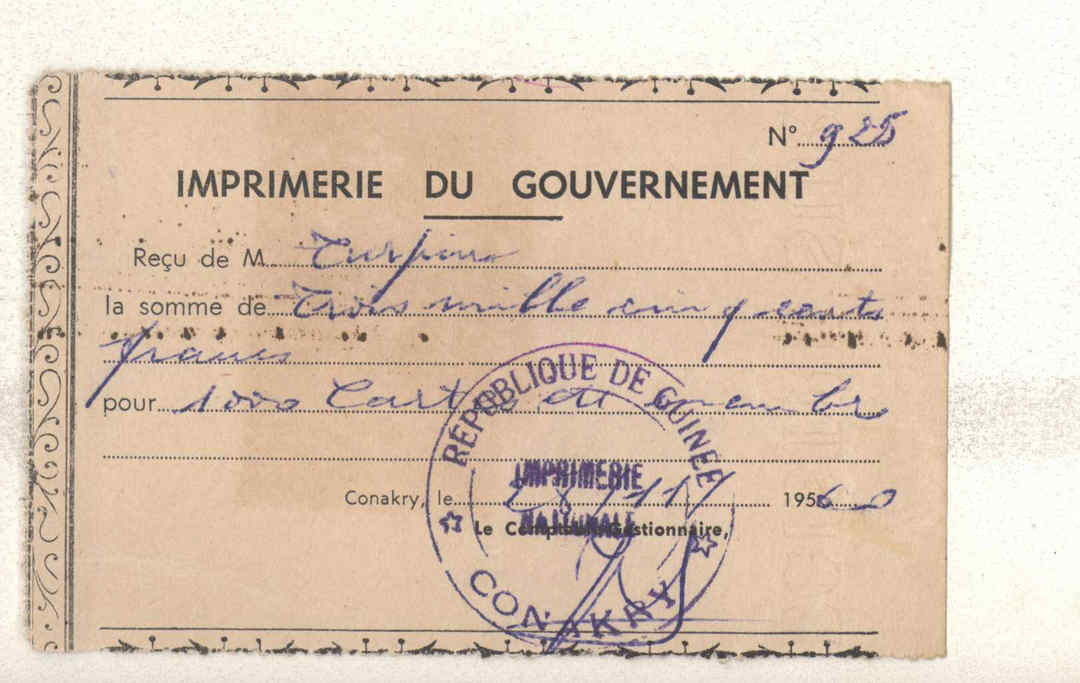 N° 925
IMPRIMERIE DU GOUVERNEMENT
Reçu de M. Turpin
la somme de Trois mille cinq cents
francs
pour 1000 Cartes de membre
RÉPUBLIQUE DE GUINÉE
IMPRIMERIE
NATIONALE
CONAKRY
Conakry, le 28/11/ 1960
Le Comptable Gestionnaire,